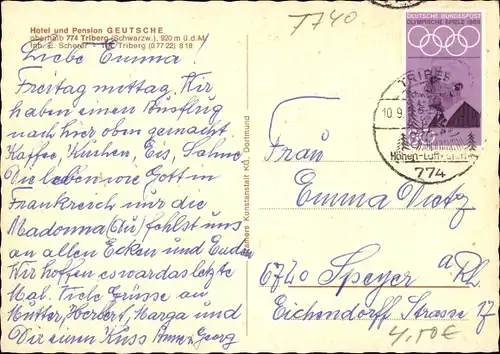 Hotel und Pension GEUTSCHE
oberhalb 774 Triberg (Schwarzw.), 920 m ü.d.M.
Inh. E. Scherer Triberg (07722) 818
Liebe Emma!
Freitag mittag. Wir
haben einen Ausflug
nach hier oben gemacht
Kaffee, Kuchen, Eis, Sahne
Wir leben wie Gott in
Frankreich nur die
Madonna (Du) fehlst uns
an allen Ecken und Enden
Wir hoffen es war das letzte
Mal. Viele Grüsse an
Mutter, Herbert, Marga und
Dir einen Kuss Anne, Georg
Kunstanstalt KG, Dortmund
T740
DEUTSCHE BUNDESPOST
OLYMPISCHE SPIELE 1968
TRIBERG
10.9.
Höhen-Luftkurort
774
Frau
Emma Dietz
6720 Speyer a/Rh.
Eichendorff Strasse 17
4,50€